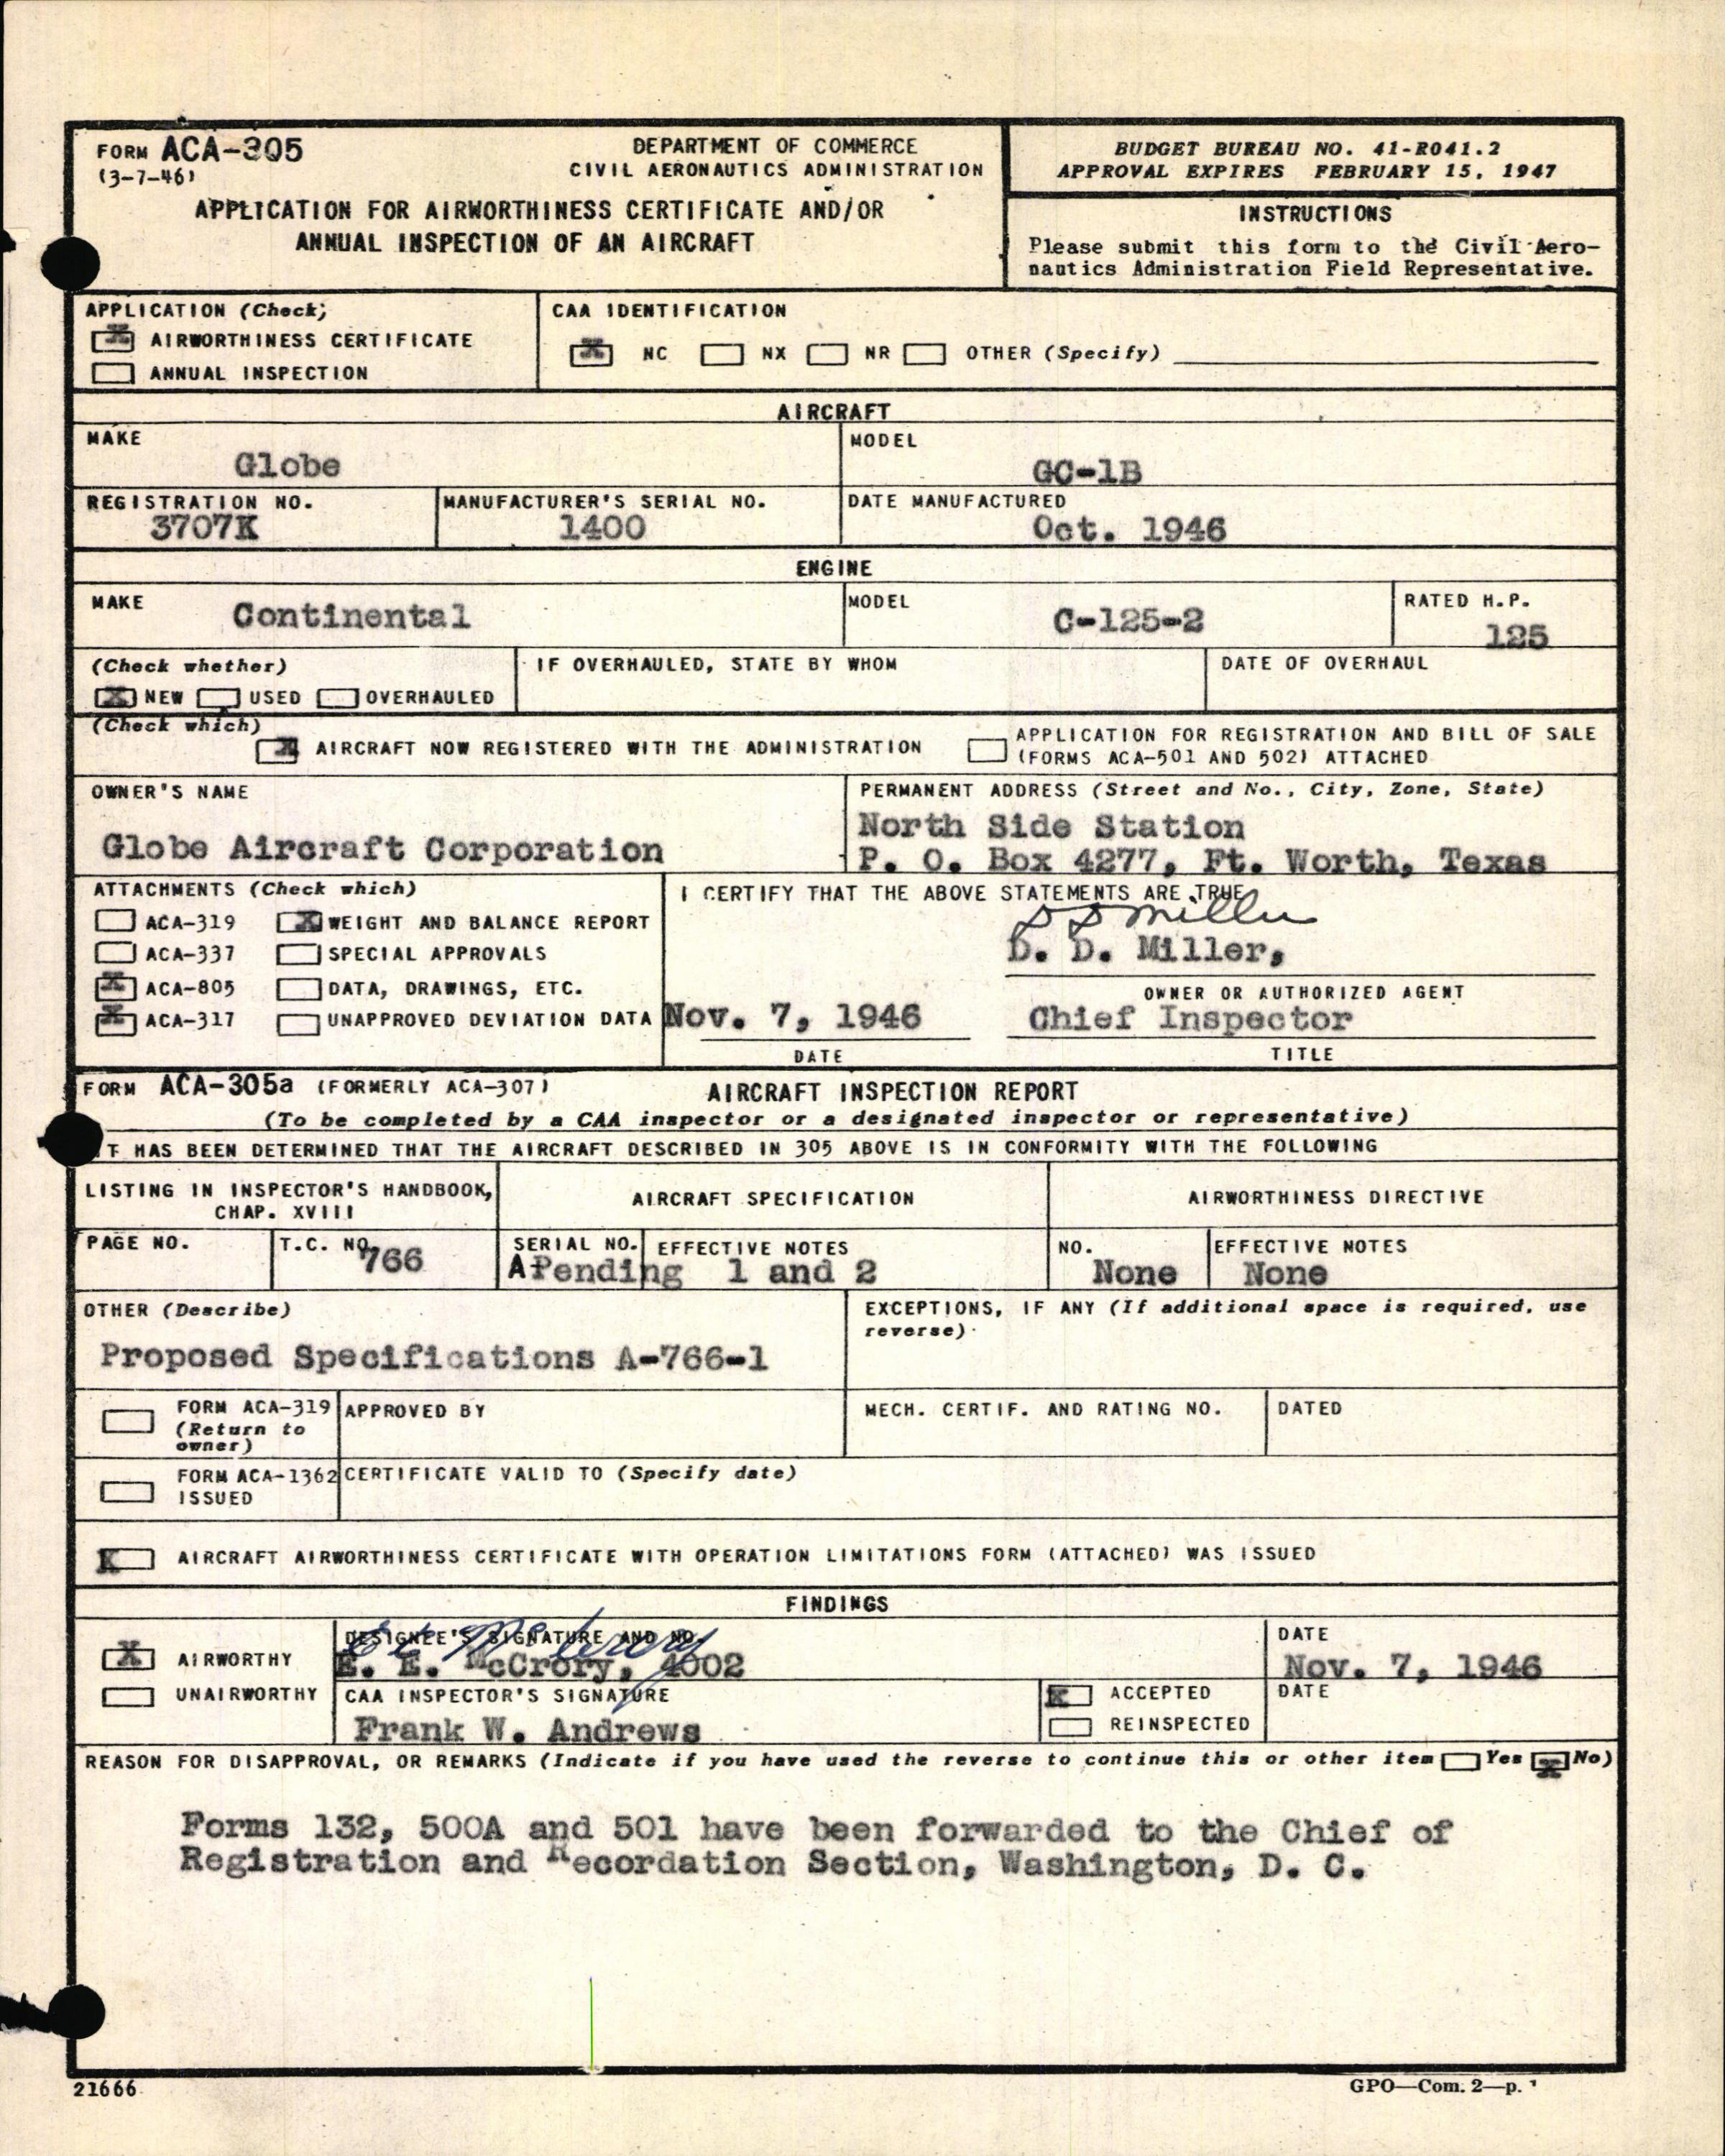 FORM ACA-305
(3-7-46)
DEPARTMENT OF COMMERCE
CIVIL AERONAUTICS ADMINISTRATION
APPLICATION FOR AIRWORTHINESS CERTIFICATE AND/OR
ANNUAL INSPECTION OF AN AIRCRAFT
BUDGET BUREAU NO. 41-R041.2
APPROVAL EXPIRES FEBRUARY 15, 1947
INSTRUCTIONS
Please submit this form to the Civil Aero-
nautics Administration Field Representative.
APPLICATION (Check)
X AIRWORTHINESS CERTIFICATE
ANNUAL INSPECTION
CAA IDENTIFICATION
X NC NX NR OTHER (Specify)
AIRCRAFT
MAKE
Globe
MODEL
GC-1B
REGISTRATION NO.
3707K
MANUFACTURER'S SERIAL NO.
1400
DATE MANUFACTURED
Oct. 1946
ENGINE
MAKE
Continental
MODEL
C-125-2
RATED H.P.
125
(Check whether)
X NEW USED OVERHAULED
IF OVERHAULED, STATE BY WHOM
DATE OF OVERHAUL
(Check which)
X AIRCRAFT NOW REGISTERED WITH THE ADMINISTRATION
APPLICATION FOR REGISTRATION AND BILL OF SALE
(FORMS ACA-501 AND 502) ATTACHED
OWNER'S NAME
Globe Aircraft Corporation
PERMANENT ADDRESS (Street and No., City, Zone, State)
North Side Station
P. O. Box 4277, Ft. Worth, Texas
ATTACHMENTS (Check which)
ACA-319 X WEIGHT AND BALANCE REPORT
ACA-337 SPECIAL APPROVALS
X ACA-805 DATA, DRAWINGS, ETC.
X ACA-317 UNAPPROVED DEVIATION DATA
I CERTIFY THAT THE ABOVE STATEMENTS ARE TRUE
D D Miller
D. D. Miller,
OWNER OR AUTHORIZED AGENT
Nov. 7, 1946
DATE
Chief Inspector
TITLE
FORM ACA-305a (FORMERLY ACA-307) AIRCRAFT INSPECTION REPORT
(To be completed by a CAA inspector or a designated inspector or representative)
T HAS BEEN DETERMINED THAT THE AIRCRAFT DESCRIBED IN 305 ABOVE IS IN CONFORMITY WITH THE FOLLOWING
LISTING IN INSPECTOR'S HANDBOOK,
CHAP. XVIII
AIRCRAFT SPECIFICATION
AIRWORTHINESS DIRECTIVE
PAGE NO.
T.C. NO.
766
SERIAL NO.
A Pending
EFFECTIVE NOTES
1 and 2
NO.
None
EFFECTIVE NOTES
None
OTHER (Describe)
Proposed Specifications A-766-1
EXCEPTIONS, IF ANY (If additional space is required, use
reverse)
FORM ACA-319
(Return to
owner)
APPROVED BY
MECH. CERTIF. AND RATING NO.
DATED
FORM ACA-1362
ISSUED
CERTIFICATE VALID TO (Specify date)
X AIRCRAFT AIRWORTHINESS CERTIFICATE WITH OPERATION LIMITATIONS FORM (ATTACHED) WAS ISSUED
FINDINGS
X AIRWORTHY
UNAIRWORTHY
DESIGNEE'S SIGNATURE AND NO.
E E McCrory
E. E. McCrory, 4002
DATE
Nov. 7, 1946
CAA INSPECTOR'S SIGNATURE
Frank W. Andrews
X ACCEPTED
REINSPECTED
DATE
REASON FOR DISAPPROVAL, OR REMARKS (Indicate if you have used the reverse to continue this or other item Yes X No)
Forms 132, 500A and 501 have been forwarded to the Chief of
Registration and Recordation Section, Washington, D. C.
21666
GPO—Com. 2—p.